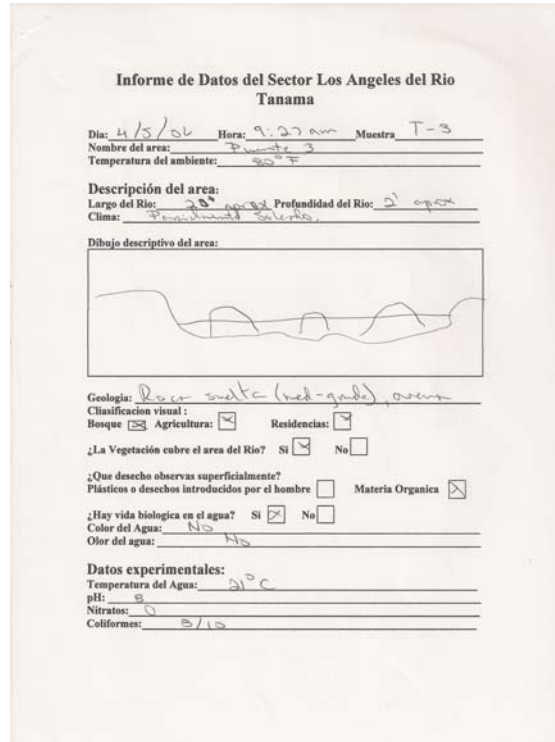 Informe de Datos del Sector Los Angeles del Rio
Tanama
Dia: 4/5/06 Hora: 9:27 am Muestra T-3
Nombre del area: Puente 3
Temperatura del ambiente: 80°F
Descripción del area:
Largo del Rio: 20' aprox Profundidad del Rio: 2' aprox
Clima: Parcialmente Soleado.
Dibujo descriptivo del area:
Geologia: Roca suelta (med-grande), arena
Cliasificacion visual :
Bosque Agricultura: Residencias:
¿La Vegetación cubre el area del Rio? Si No
¿Que desecho observas superficialmente?
Plásticos o desechos introducidos por el hombre Materia Organica
¿Hay vida biologica en el agua? Si No
Color del Agua: No
Olor del agua: No
Datos experimentales:
Temperatura del Agua: 21°C
pH: 8
Nitratos: 0
Coliformes: 8/10